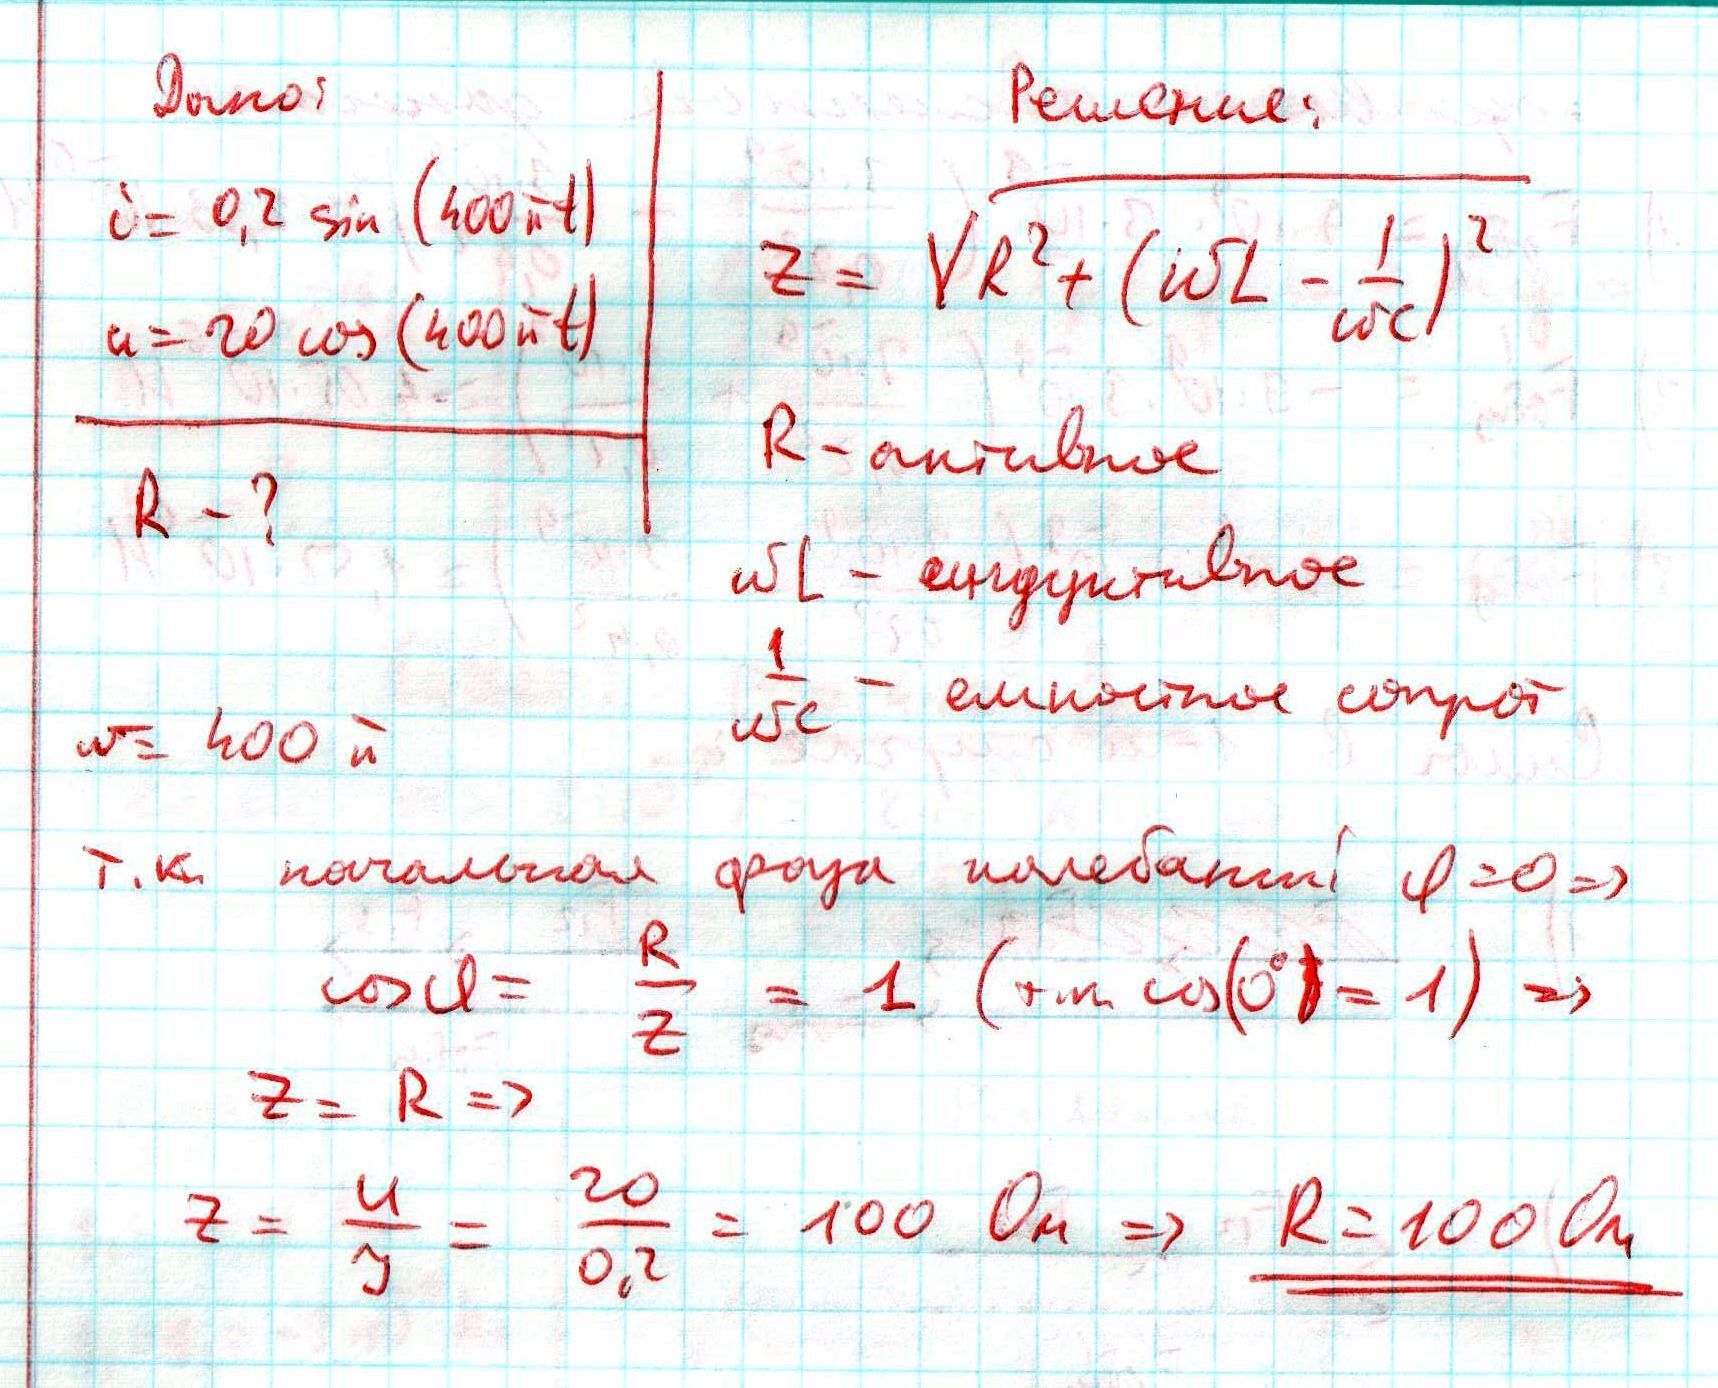 Дано:
i = 0,2 sin (400πt)
u = 20 cos (400πt)
R - ?
ω = 400 π
Решение:
Z = √R² + (ωL - 1/ωC)²
R - активное
ωL - индуктивное
1/ωC - емкостное сопрот
т.к. начальная фаза колебаний φ = 0 =>
cosφ = R/Z = 1 (т.к. cos(0°) = 1) =>
Z = R =>
Z = U/J = 20/0,2 = 100 Ом => R = 100 Ом